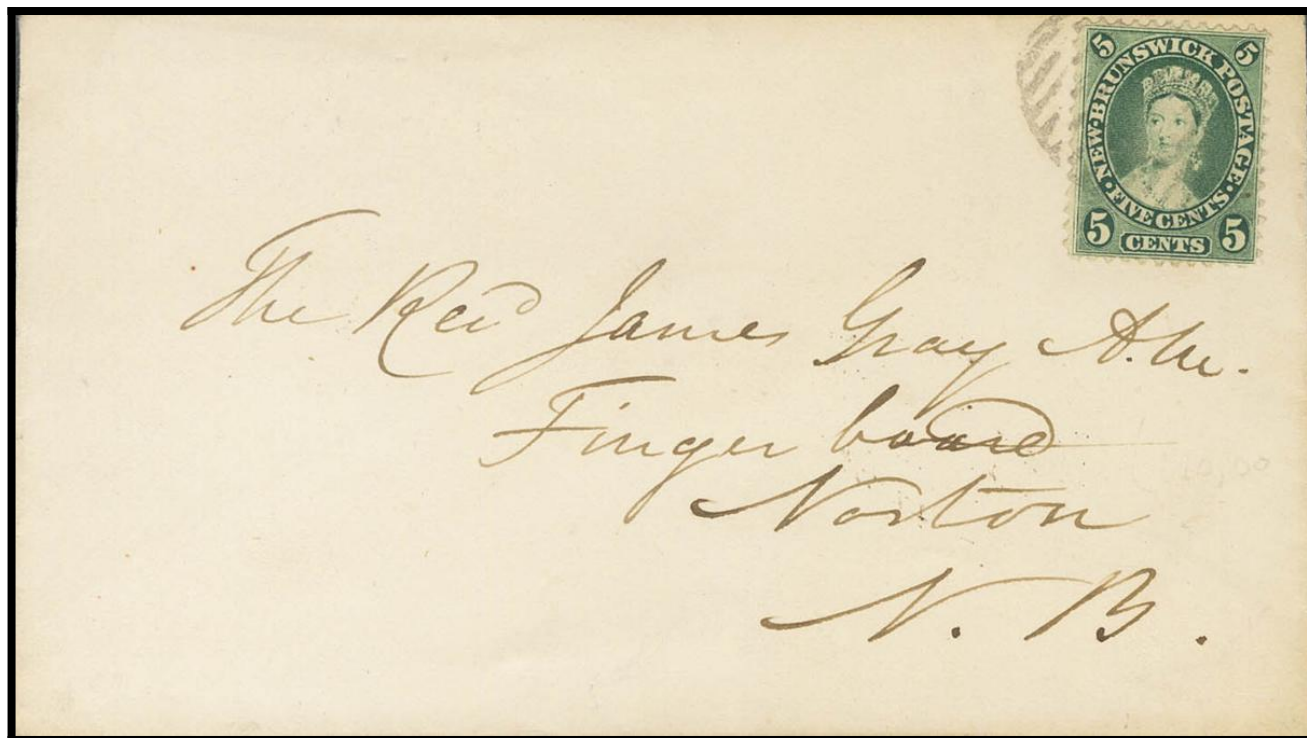 5 5
NEW·BRUNSWICK POSTAGE·
FIVE CENTS
5 CENTS 5
The Revd James Gray A.M.
Finger board
Norton
N. B.
10,00